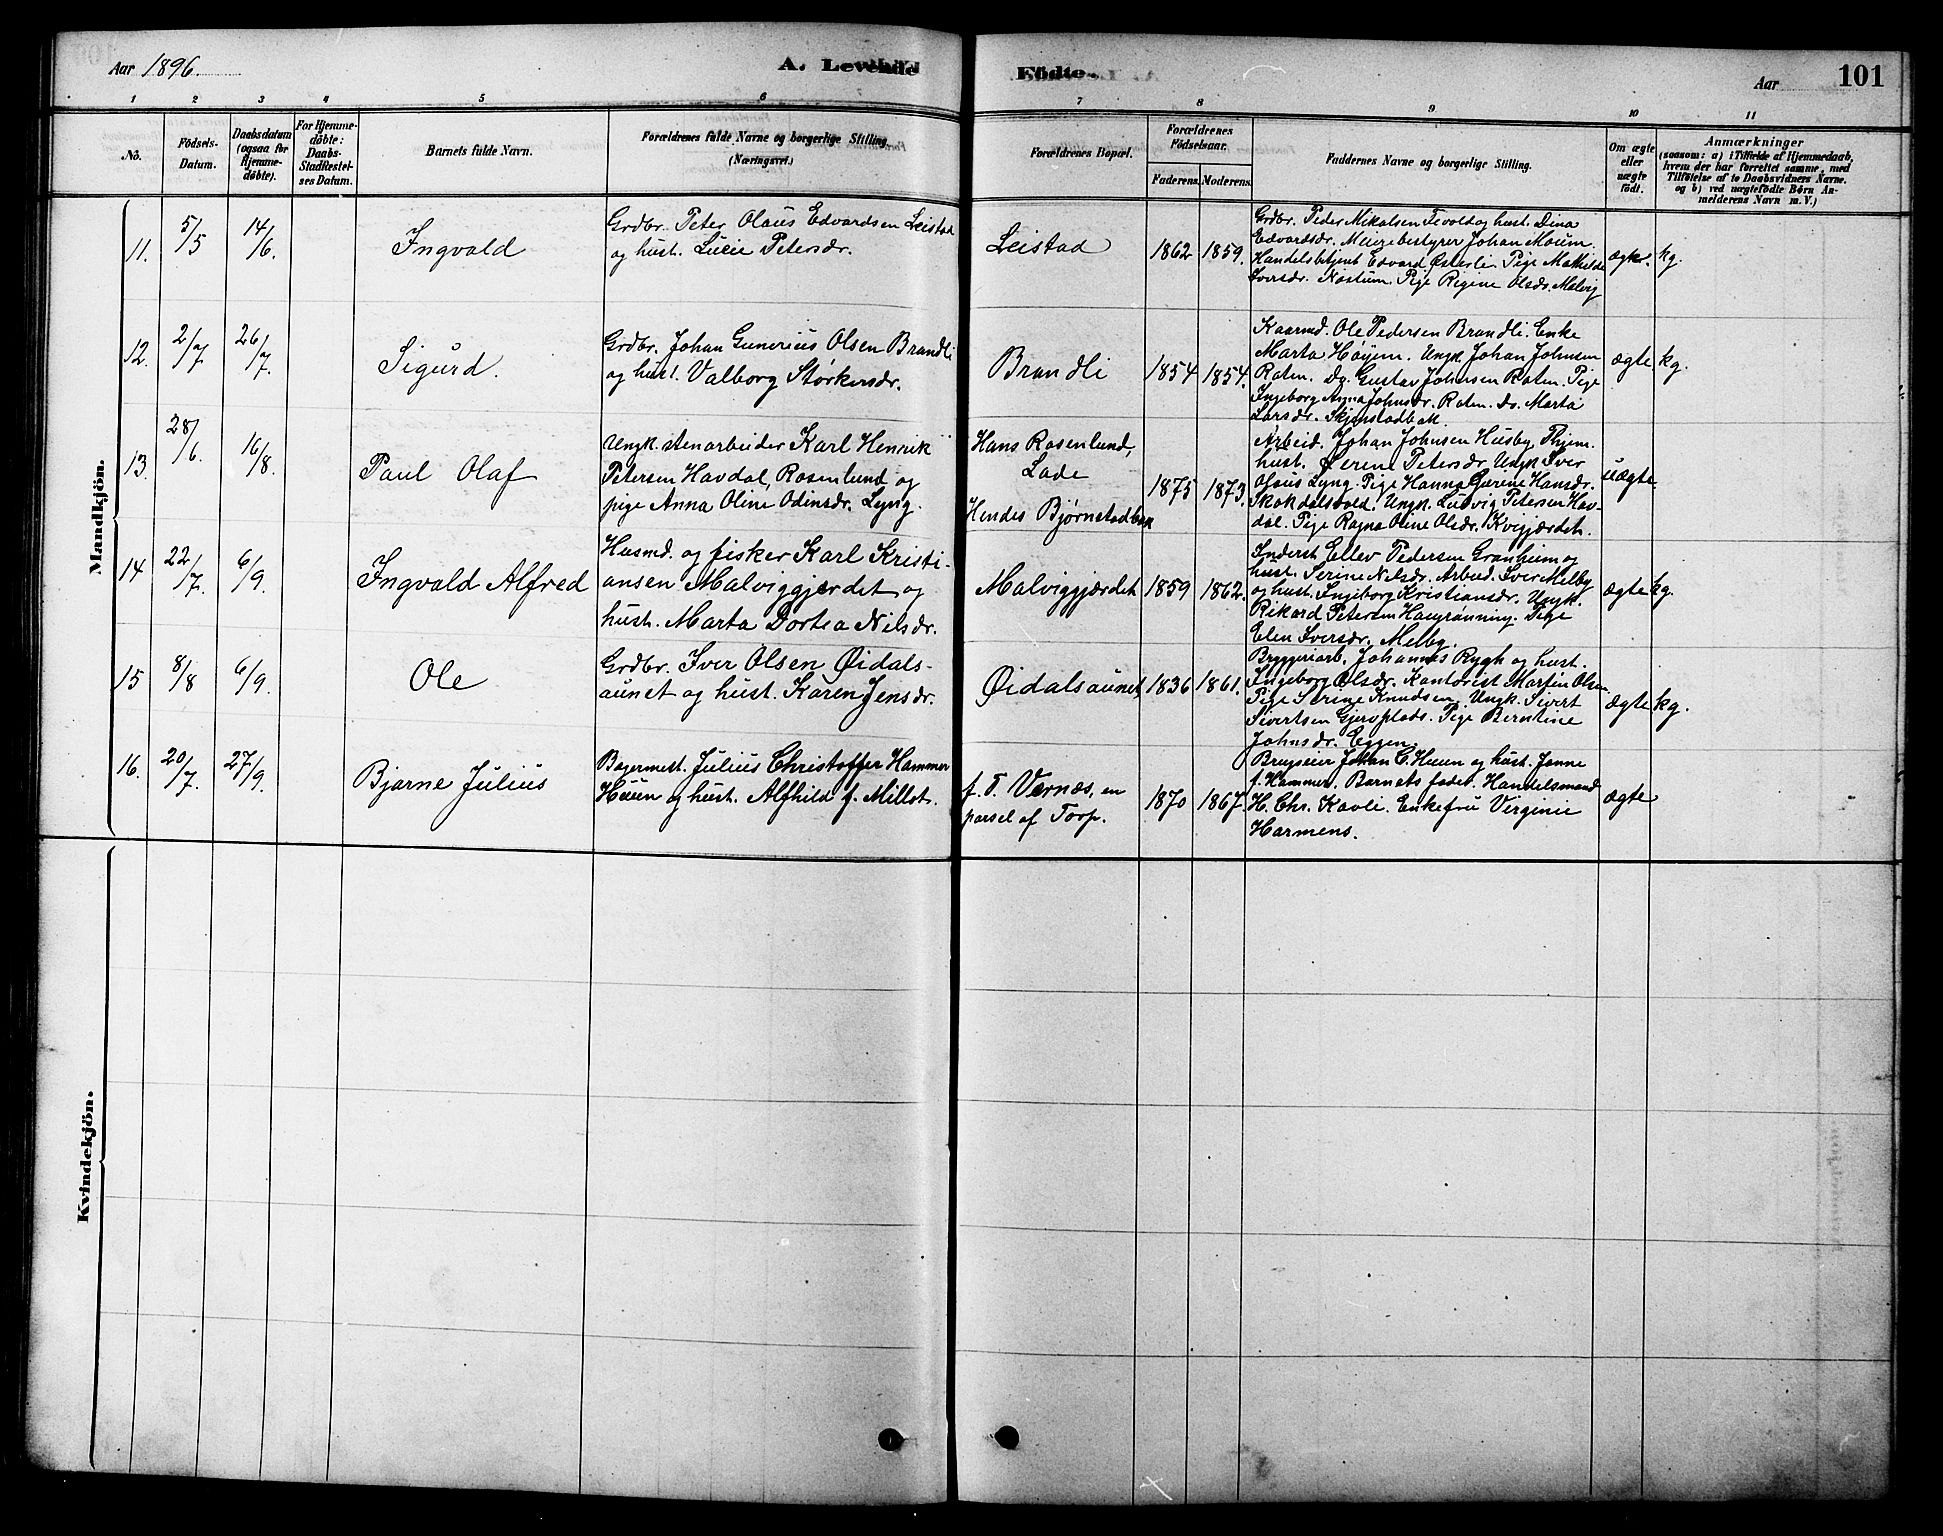 Aar 1896.
A. Levende
Födte.
Aar
101
1 2 3 4 5 6 7 8 9 10 11
No.
Födsels-
Datum.
Daabsdatum
(ogsaa for
Hjemme-
döbte).
For Hjemme-
döbte:
Daabs-
Stadfæstel-
ses Datum.
Barnets fulde Navn.
Forældrenes fulde Navne og borgerlige Stilling
(Næringsvei.)
Forældrenes Bopæl.
Forældrenes
Födselsaar.
Faderens. Moderens.
Faddernes Navne og borgerlige Stilling.
Om ægte
eller
uægte
födt.
Anmærkninger
(saasom: a) i Tilfælde af Hjemmedaab,
hvem der har forrettet samme, med
Tilföielse af to Daabsvidners Navne.
og b) ved uægtefödte Börn An-
melderens Navn m. V.)
Mandkjön.
11.
5/5
14/6.
Ingvald
Grdbr. Peter Olaus Edvardsen Leistad
og hust. Lucie Petersdr.
Leistad
1862 1859.
Grdbr. Peder Mikalsen Tevold og hust. Dina
Edvardsdr. Meieribestyrer Johan Moum.
Handelsbetjent Edvard Østerlie. Pige Mathilde
Iversdr. Nostum. Pige Regine Olsdr. Malvig
ægte. kg.
12.
2/7
26/7.
Sigurd.
Grdbr. Johan Gunerius Olsen Brandli
og hust. Valborg Størkersdr.
Brandli
1854 1854.
Kaarmd. Ole Pedersen Brandli. Enke
Marta Høyem. Ungk. Johan Johnsen
Raten. Do. Gustav Johnsen Raten. Pige
Ingeborg Anna Johnsdr. Raten. do. Marta
Larsdr. Skjenstadbak.
ægte kg.
13.
28/6.
16/8.
Paul Olaf
Ungk. stenarbeider Karl Henrik
Petersen Havdal, Rosenlund og
pige Anna Oline Odinsdr. Lyng.
Hans Rosenlund,
Lade
Hendes Bjørnstadbak
1875 1873.
Arbeid. Johan Johnsen Husby, Thjem.
hust. Serine Petersdr. Ungk. Iver
Olsen Lyng. Pige Hanna Gjerine Hansdr.
Skokdalsvold. Ungk. Ludvig Petersen Hav-
dal. Pige Ragna Oline Olsdr. Kvigjærdet.
uægte.
14
22/7.
6/9.
Ingvald Alfred
Husmd. og fisker Karl Kristi-
ansen Malviggjerdet og
hust. Marta Dortea Nilsdr.
Malviggjærdet
1859 1862.
Inderst Ellev Pedersen Granheim og
hust. Serine Nilsdr. Arbeid. Iver Melby
og hust. Ingeborg Kristiansdr. Ungk.
Rikard Petersen Haugrønning. Pige
Elen Iversdr. Melby.
ægte kg.
15
8/8
6/9.
Ole
Grdbr. Iver Olsen Øidals-
aunet og hust. Karen Jensdr.
Øidalsaunet
1836 1861.
Bryggeriarb. Johannes Rygh og hust.
Ingeborg Olsdr. Kantorist Martin Olsen
Pige Serine Knudsen. Ungk. Sivert
Sivertsen Gjervplads. Pige Berntine
Johnsdr. Eggen.
ægte kg.
16.
20/7.
27/9.
Bjarne Julius
Bagermest. Julius Christoffer Hammer
Huun og hust. Alfhild f. Millet.
f. T. Vernæs, en
parsel af Torp.
1870 1867.
Brugseier Johan C. Huun og hust. Janne
f. Hammer. Barnets fader. Handelsmand
H. Chr. Kavli. Enkefru Virginie
Harmens.
ægte
Kvindekjön.